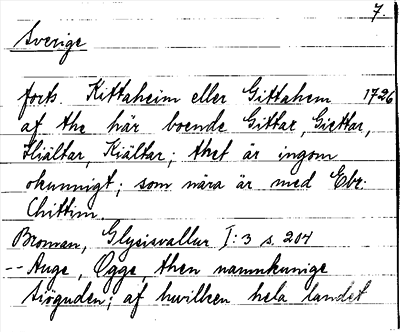 7.
Sverige
forts. Kittaheim eller Gittahem 1726
af the här boende Gittar, Giettar,
Hiältar, Kiältar; thet är ingom
okunnigt; som nära är med Ebr.
Chittim.
Broman, Glysisvallur I: 3 s. 204
-- Auge, Ögge, then namnkunige
siöguden; af hwilken hela landet